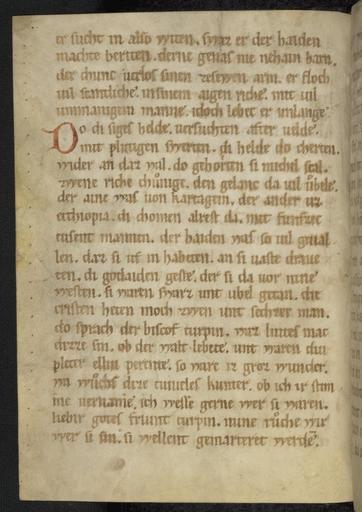 er sůcht in also witen. swaz er der haiden
machte beriten. derne genas nie nehain barn.
der chunc uerlos sinen zesewen arm. er floch
uil scantliche. in sinem aigen riche. mit uil
unmanigem manne. idoch lebet er unlange
Do di siges helde. uersuchten after uelde.
mit plůtigen swerten. di helde do cherten.
wider an daz wal. do gehorten si michel scal.
zwene riche chuninge. den gelanc da uil ubele.
der aine was uon kartagein. der ander uz
ethiopia. di chomen alrest da. mit funfzec
tusent mannen. der haiden was so uil geual
len. daz si uf in habeten. an si uaste draue
ten. di gotliaiden geste. der si da uor niene
westen. si waren swarz unt ubel getan. die
cristen heten noch zwen unt sechzec man.
do sprach der biscof turpin. waz liutes mac
dizze sin. ob der walt lebete. unt waren diu
pleter elliu perente. so ware iz groz wunder.
wa wůchs dize tiuueles kunter. ob ich ir stim
me uernamě. ich wesse gerne wer si waren.
liebir gotes friunt turpin. nune růche wir
wer si sin. si wellent gemarteret werdě.